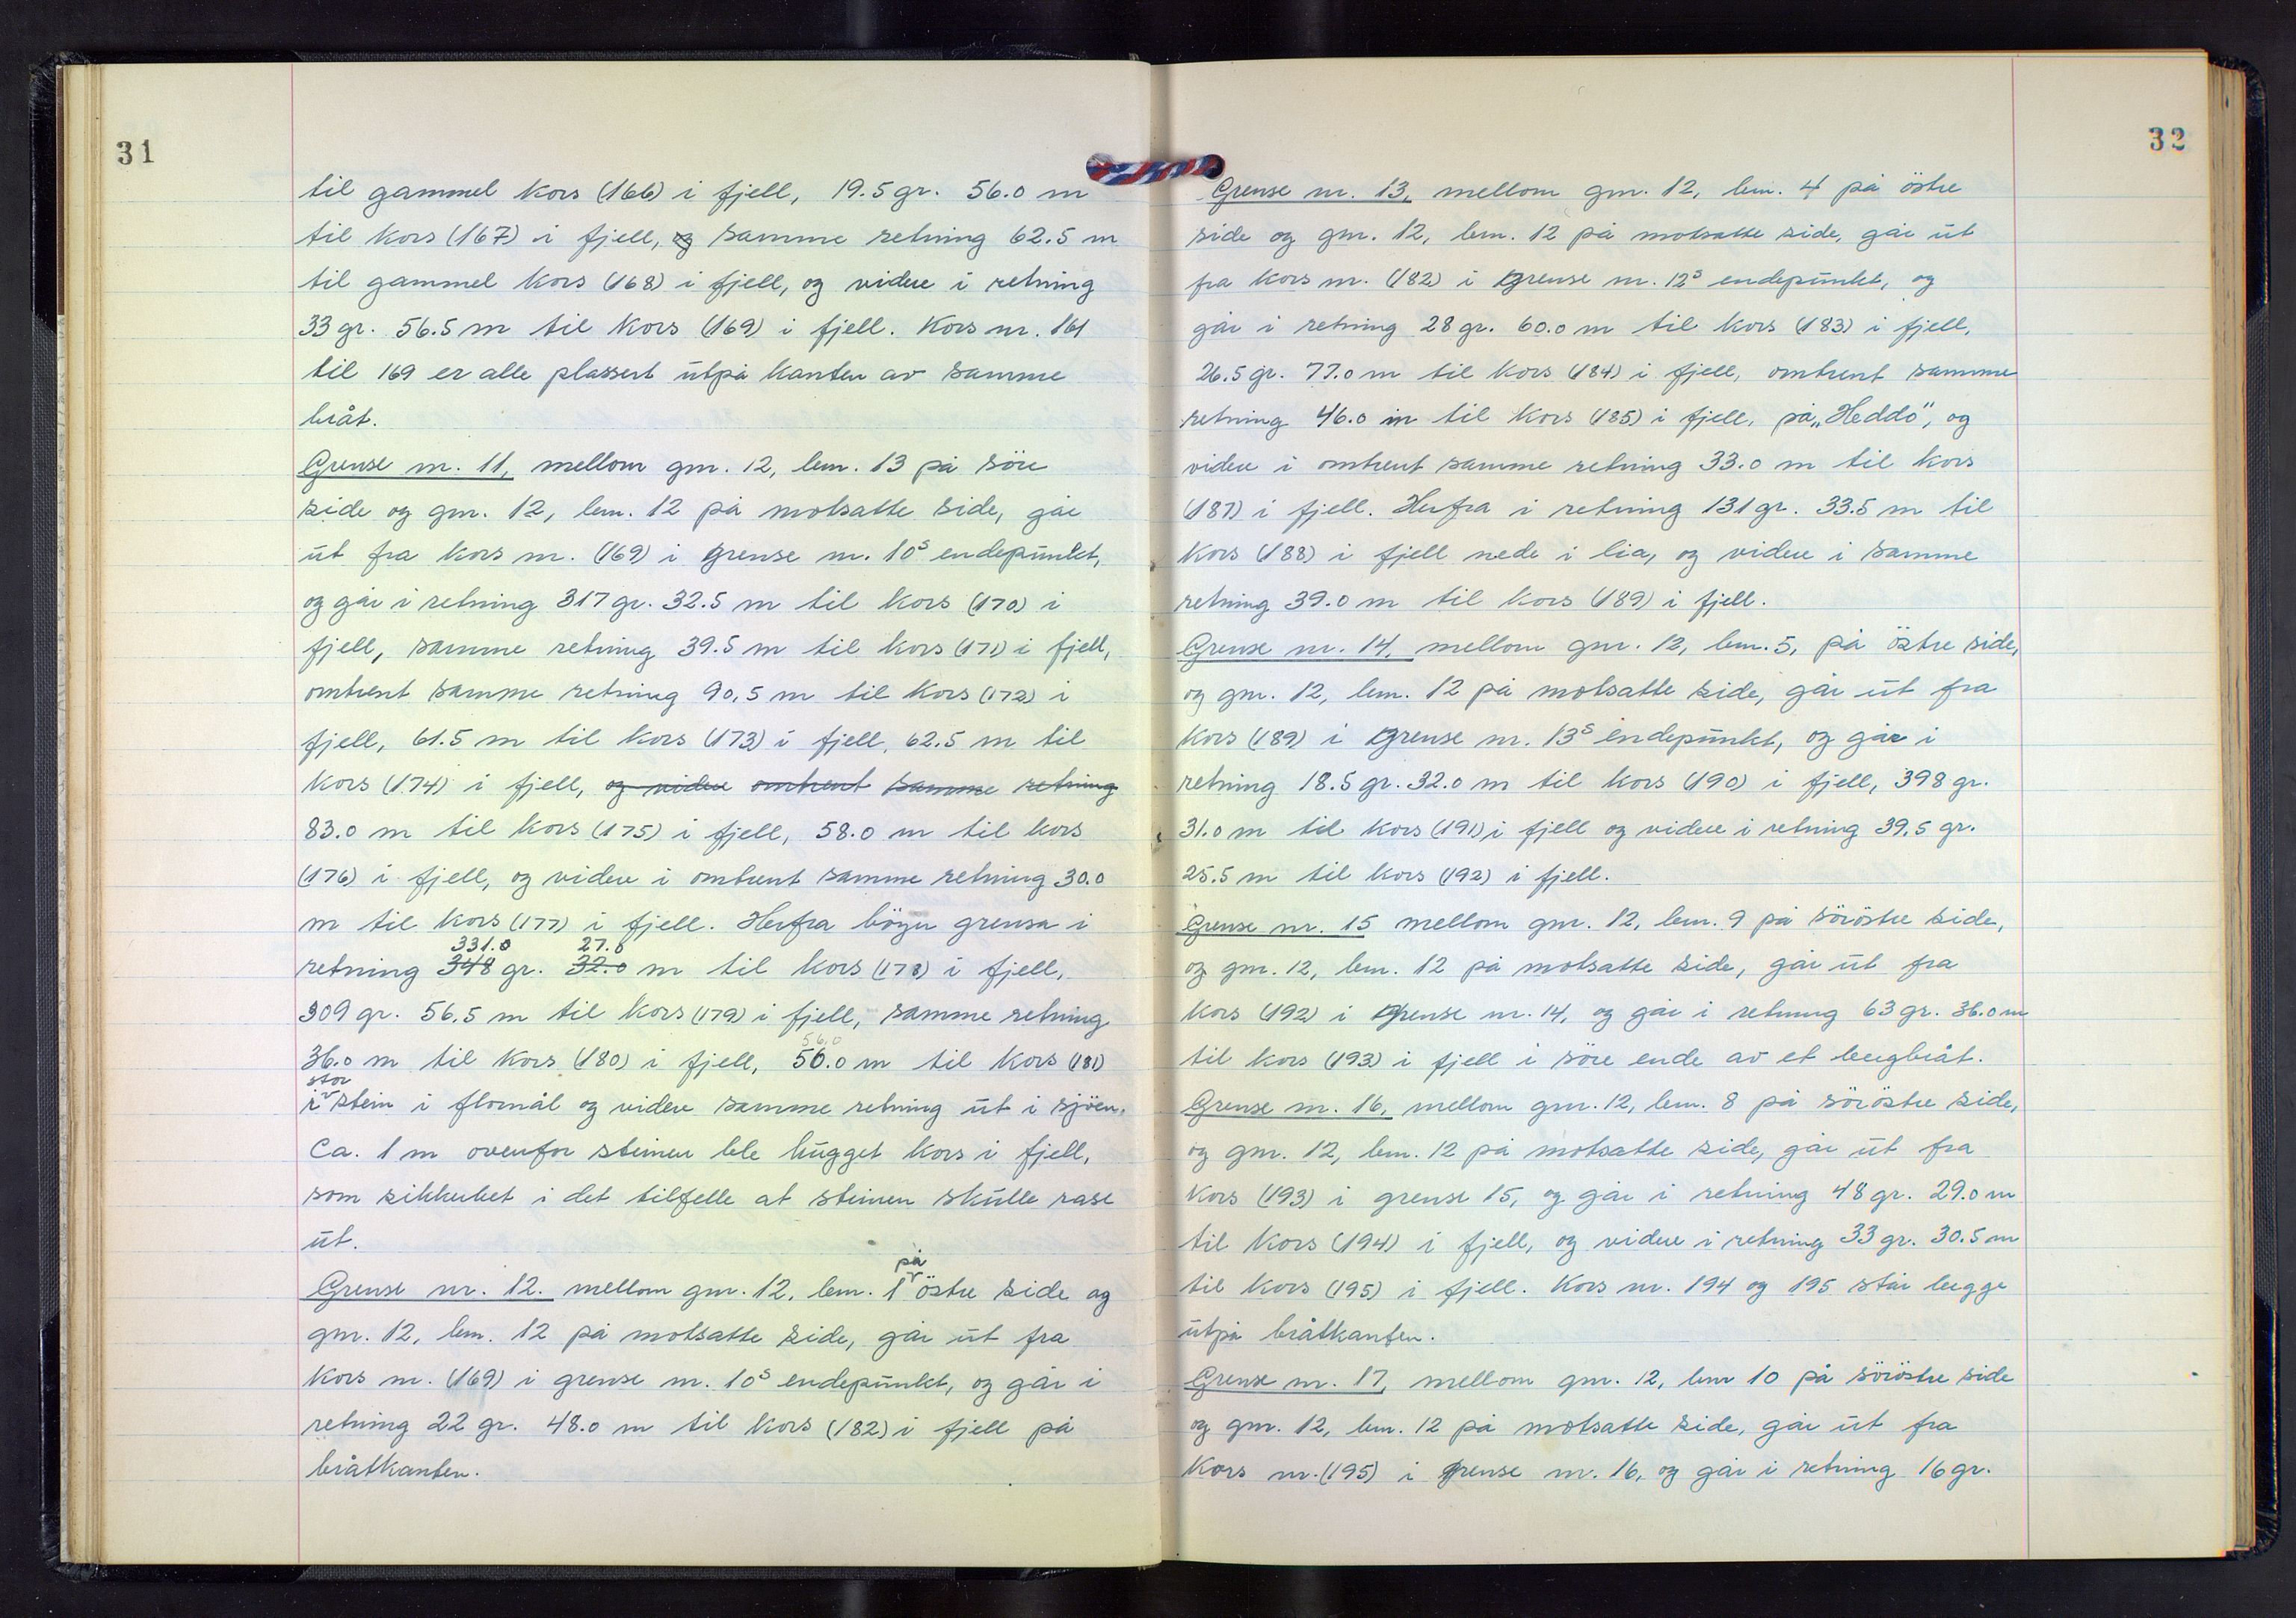 31
til gammel kors (166) i fjell, 19.5 gr. 56.0 m
til kors (167) i fjell, og samme retning 62.5 m
til gammel kors (168) i fjell, og videre i retning
33 gr. 56.5 m til kors (169) i fjell. Kors nr. 161
til 169 er alle plassert utpå kanten av samme
bråt.
Grense nr. 11, mellom gnr. 12, bnr. 13 på söre
side og gnr. 12, bnr. 12 på motsatte side, går
ut fra kors nr. (169) i grense nr. 10s endepunkt,
og går i retning 317 gr. 32.5 m til kors (170) i
fjell, samme retning 39.5 m til kors (171) i fjell,
omtrent samme retning 90,5 m til kors (172) i
fjell, 61.5 m til kors (173) i fjell, 62.5 m til
kors (174) i fjell, og videre omtrent samme retning
83.0 m til kors (175) i fjell, 58.0 m til kors
(176) i fjell, og videre i omtrent samme retning 30.0
m til kors (177) i fjell. Herfra böyer grensa i
331.0 27.0
retning 348 gr. 32.0 m til kors (178) i fjell,
309 gr. 56.5 m til kors (179) i fjell, samme retning
56.0
36.0 m til kors (180) i fjell, 56.0 m til kors (181)
stor
i stein i flomål og videre samme retning ut i sjöen.
Ca. 1 m ovenfor steinen ble hugget kors i fjell,
som sikkerhet i det tilfelle at steinen skulle rase
ut.
på
Grense nr. 12. mellom gnr. 12, bnr. 1 östre side og
gnr. 12, bnr. 12 på motsatte side, går ut fra
kors nr. (169) i grense nr. 10s endepunkt, og går i
retning 22 gr. 48.0 m til kors (182) i fjell på
bråtkanten.
32
Grense nr. 13, mellom gnr. 12, bnr. 4 på östre
side og gnr. 12, bnr. 12 på motsatte side, går ut
fra kors nr. (182) i grense nr. 12s endepunkt, og
går i retning 28 gr. 60.0 m til kors (183) i fjell,
26.5 gr. 77.0 m til kors (184) i fjell, omtrent samme
retning 46.0 m til kors (185) i fjell, på „Heddo", og
videre i omtrent samme retning 33.0 m til kors
(187) i fjell. Herfra i retning 131 gr. 33.5 m til
kors (188) i fjell nede i lia, og videre i samme
retning 39.0 m til kors (189) i fjell.
Grense nr. 14, mellom gnr. 12, bnr. 5, på östre side,
og gnr. 12, bnr. 12 på motsatte side, går ut fra
kors (189) i grense nr. 13s endepunkt, og går i
retning 18.5 gr. 32.0 m til kors (190) i fjell, 398 gr.
31.0 m til kors (191) i fjell og videre i retning 39,5 gr.
25.5 m til kors (192) i fjell.
Grense nr. 15 mellom gnr. 12, bnr. 9 på söröstre side,
og gnr. 12, bnr. 12 på motsatte side, går ut fra
kors (192) i grense nr. 14, og går i retning 63 gr. 36.0 m
til kors (193) i fjell i söre ende av et bergbråt.
Grense nr. 16, mellom gnr. 12, bnr. 8 på söröstre side,
og gnr. 12, bnr. 12 på motsatte side, går ut fra
kors (193) i grense 15, og går i retning 48 gr. 29.0 m
til kors (194) i fjell, og videre i retning 33 gr. 30.5 m
til kors (195) i fjell. Kors nr. 194 og 195 står begge
utpå bråtkanten.
Grense nr. 17, mellom gnr. 12, bnr 10 på söröstre side
og gnr. 12, bnr. 12 på motsatte side, går ut fra
kors nr. (195) i grense nr. 16, og går i retning 16 gr.